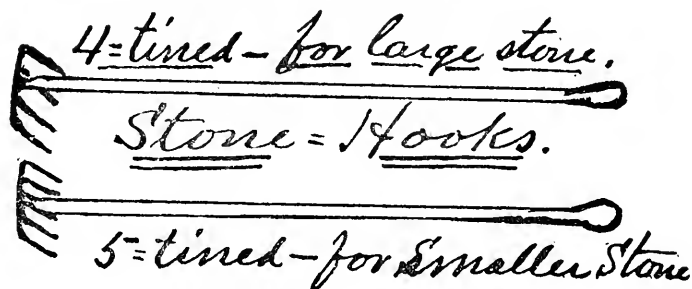 4=tined - for large stone.
Stone = Hooks.
5=tined - for Smaller Stone